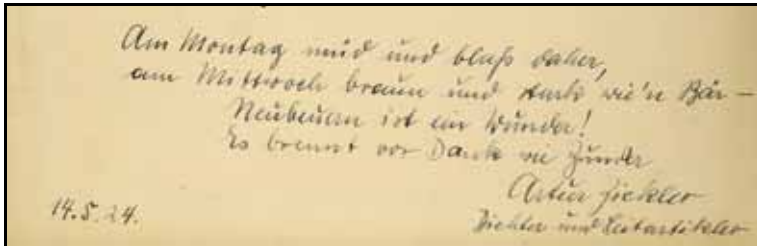 Am Montag müd und blaß daher,
am Mittwoch braun und stark wie'n Bär –
Neubeuern ist ein Wunder!
Es brennt vor Dank wie Zunder
Artur Zickler
Dichter und Leitartikler
14.5.24.